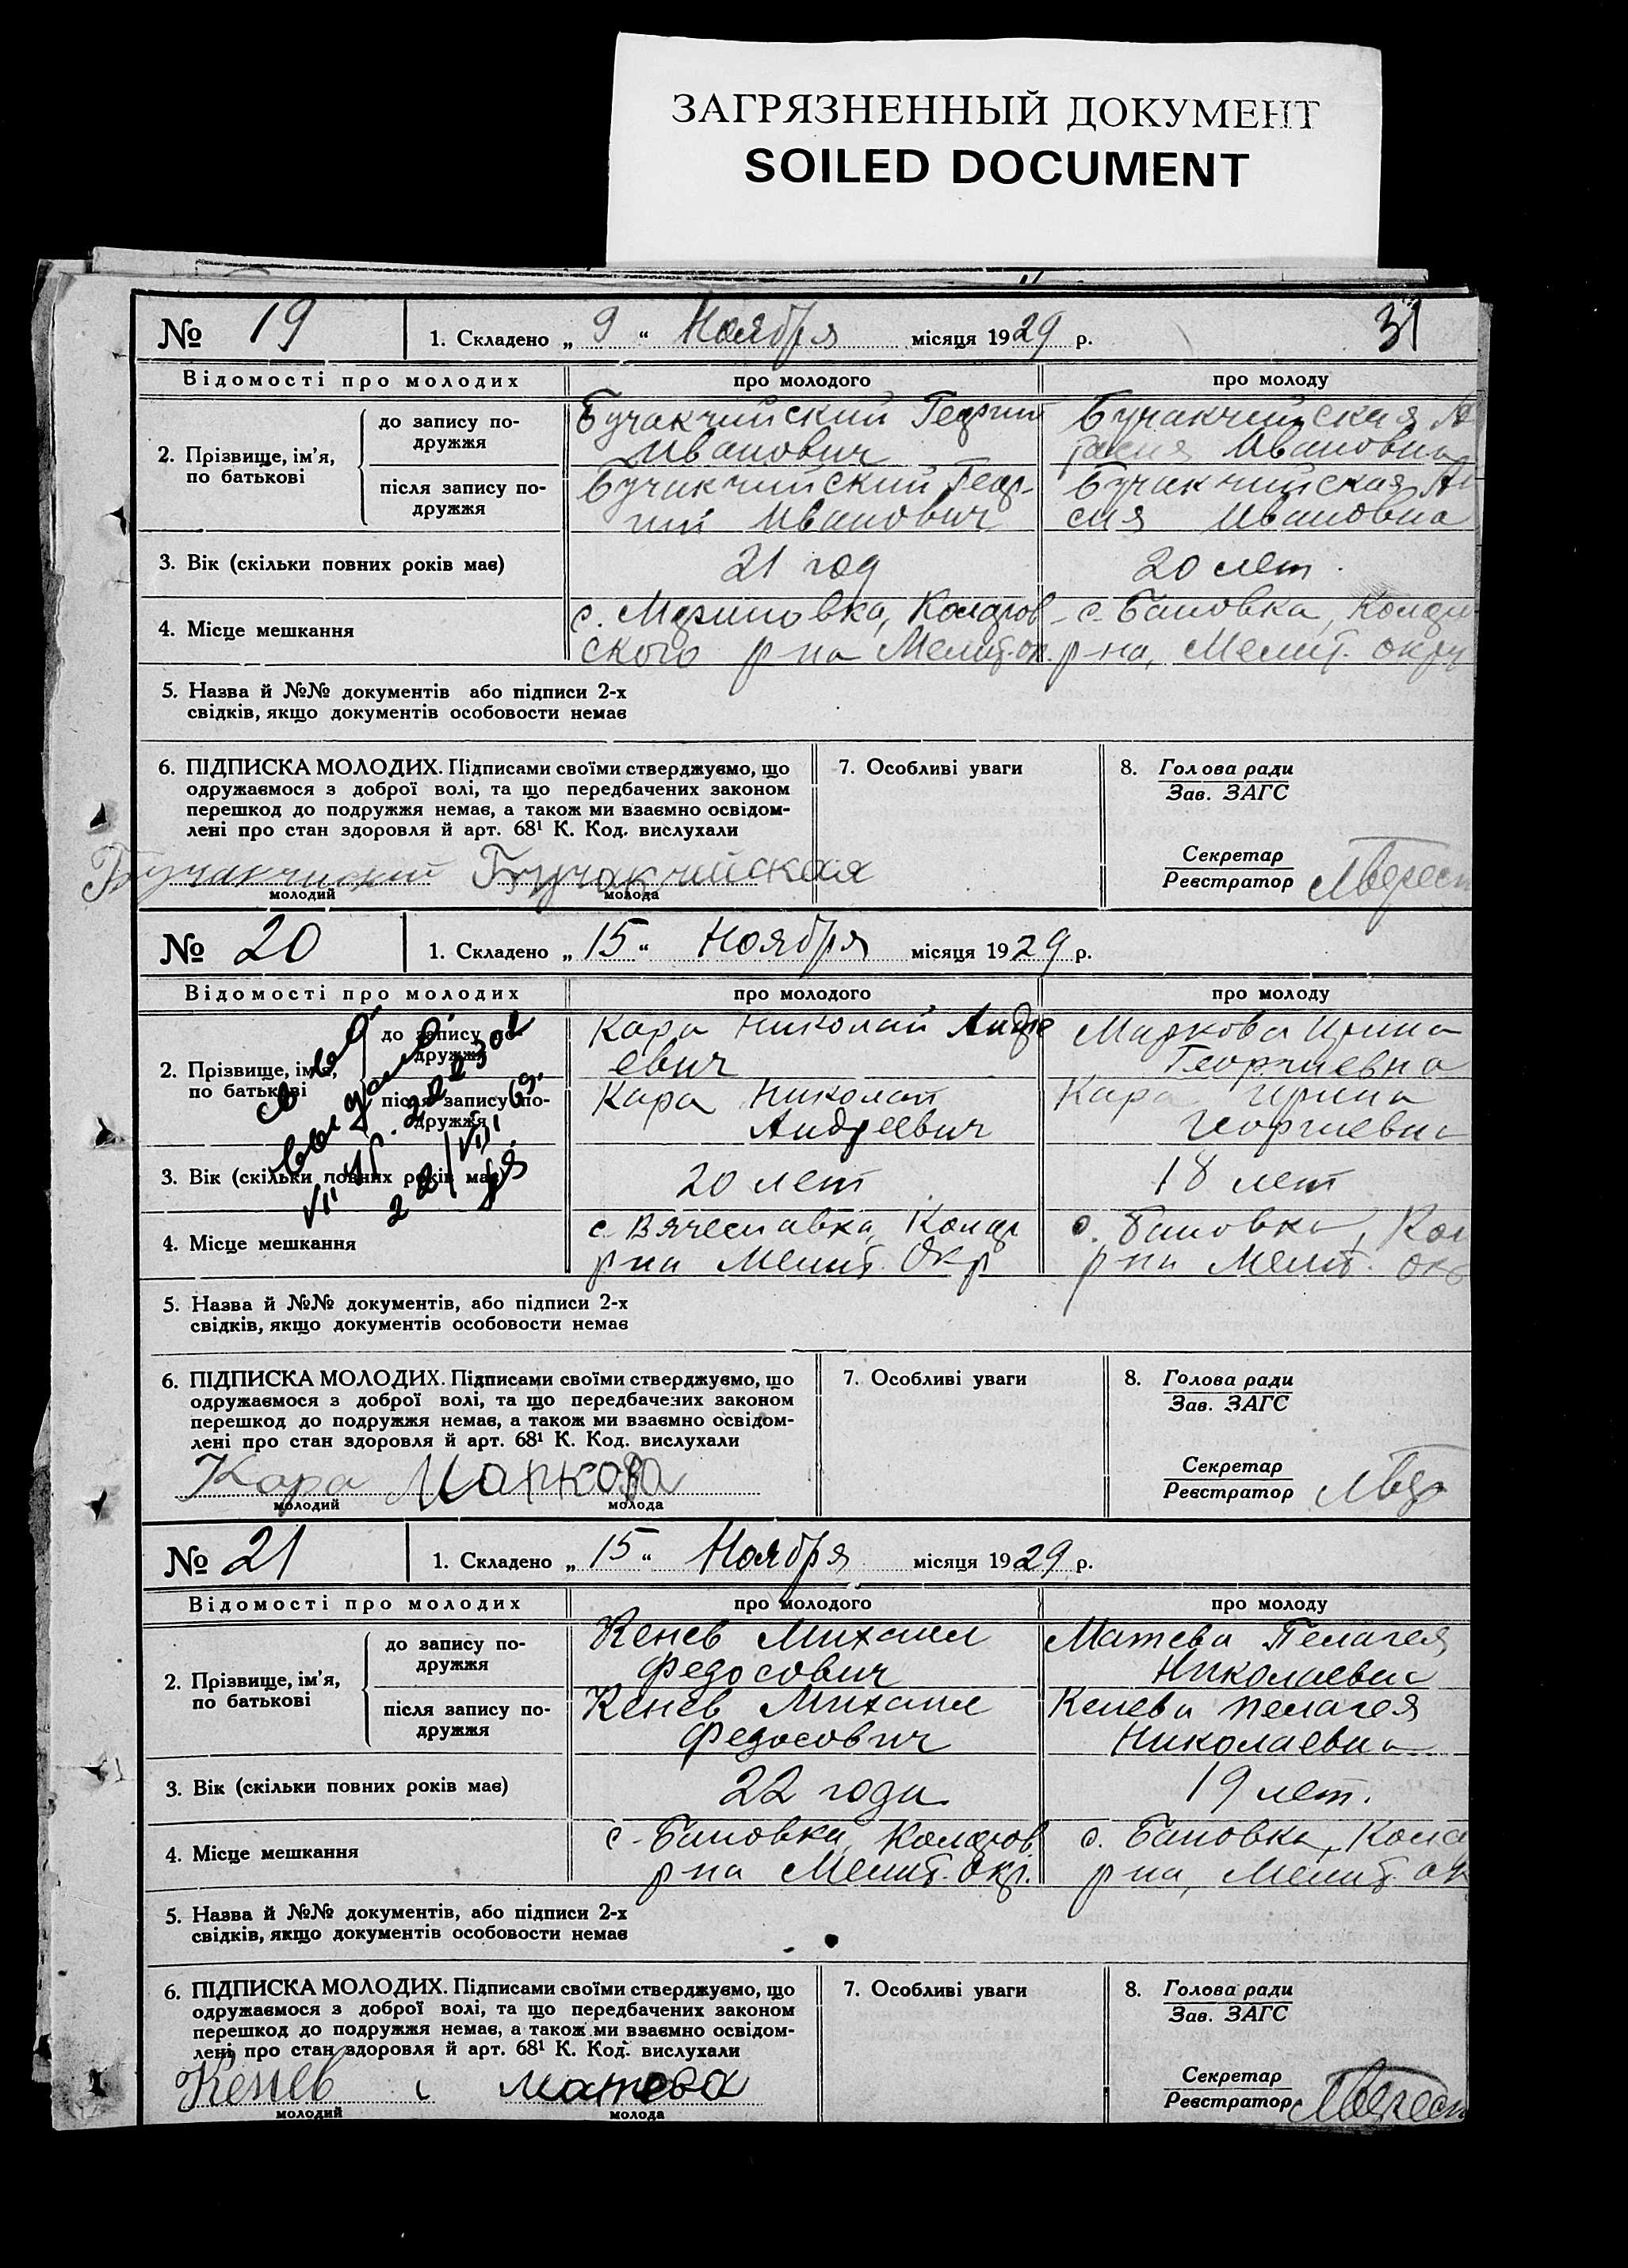 ЗАГРЯЗНЕННЫЙ ДОКУМЕНТ
SOILED DOCUMENT
31
№ 19 1. Складено „ 9 “ Ноября місяця 1929 р.
Відомості про молодих про молодого про молоду
2. Прізвище, ім'я, по батькові
до запису по-
дружжя
Бучакчийский Георгий
Иванович
Бучакчийская
Ивановна
після запису по-
дружжя
Бучакчийский Геор-
гий Иванович
Бучакчийская
сия Ивановна
3. Вік (скільки повних років має) 21 год 20 лет
4. Місце мешкання
с. Мариновка, Коларов
ского р на Мелит. ок.
с. Бановка, Колар
р на, Мелит. окру
5. Назва й №№ документів або підписи 2-х
свідків, якщо документів особовости немає
6. ПІДПИСКА МОЛОДИХ. Підписами своїми стверджуємо, що
одружаємося з доброї волі, та що передбачених законом
перешкод до подружжя немає, а також ми взаємно освідом-
лені про стан здоровля й арт. 68¹ К. Код. вислухали
Бучакчиский Бучакчийская
молодий молода
7. Особливі уваги
8. Голова ради
Зав. ЗАГС
Секретар
Реєстратор
№ 20 1. Складено „ 15 “ Ноября місяця 1929 р.
Відомості про молодих про молодого про молоду
2. Прізвище, ім'я,
по батькові
до запису по-
дружжя
Кара Николай Андре
евич
Маркова Ирина
Георгиевна
після запису по-
дружжя
Кара Николай
Андреевич
Кара Ирина
Георгиевна
св во
выдано
3. Вік (скільки повних років має) 20 лет 18 лет
4. Місце мешкання
с. Вячеславка, Колар
р на Мелит. Окр
с. Бановка, Кол
р на Мелит. Ок
5. Назва й №№ документів, або підписи 2-х
свідків, якщо документів особовости немає
6. ПІДПИСКА МОЛОДИХ. Підписами своїми стверджуємо, що
одружаємося з доброї волі, та що передбачених законом
перешкод до подружжя немає, а також ми взаємно освідом-
лені про стан здоровля й арт. 68¹ К. Код. вислухали
Кара Маркова
молодий молода
7. Особливі уваги
8. Голова ради
Зав. ЗАГС
Секретар
Реєстратор
№ 21 1. Складено „ 15 “ Ноября місяця 1929 р.
Відомості про молодих про молодого про молоду
2. Прізвище, ім'я,
по батькові
до запису по-
дружжя
Кенев Михаил
Федосович
Матева Пелагея
Николаевна
після запису по-
дружжя
Кенев Михаил
Федосович
Кенева Пелагея
Николаевна
3. Вік (скільки повних років має) 22 года 19 лет.
4. Місце мешкання
с. Бановка, Коларов
р на Мелит. Окр.
с. Бановка, Кола
р на, Мелит. ок
5. Назва й №№ документів, або підписи 2-х
свідків, якщо документів особовости немає
6. ПІДПИСКА МОЛОДИХ. Підписами своїми стверджуємо, що
одружаємося з доброї волі, та що передбачених законом
перешкод до подружжя немає, а також ми взаємно освідом-
лені про стан здоровля й арт. 68¹ К. Код. вислухали
Кенев Матева
молодий молода
7. Особливі уваги
8. Голова ради
Зав. ЗАГС
Секретар
Реєстратор